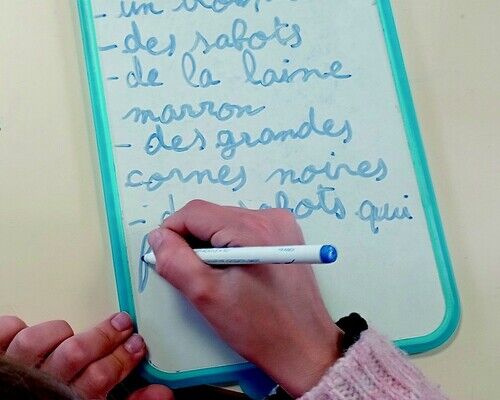 - un
- des sabots
- de la laine
marron
- des grandes
cornes noires
- des sabots qui
f